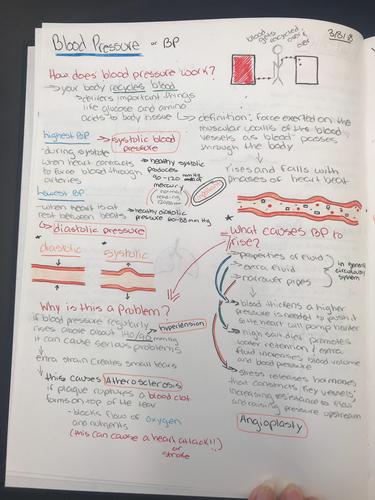 Blood Pressure or BP
3/3/18
blood gets recycled over & over
How does blood pressure work?
→ your body recycles blood
→ delivers important things
like glucose and amino
acids to body tissue
→ definition: force exerted on the
muscular walls of the blood
vessels as blood passes
through the body
↓
rises and falls with
phases of heart beat
highest BP → systolic blood
pressure
- during systole
when heart contracts
to force blood through
arteries
→ healthy systolic
produces
90-120 mm of
mercury
normal
reading
Lowest BP
- when heart is at
rest between beats
→ healthy diastolic
pressure 60-80 mm Hg
↳ diastolic pressure
diastolic systolic
* What causes BP to
rise?
→ properties of fluid
→ extra fluid
→ narrower pipes
in general
circulatory
system
→ blood thickens a higher
pressure is needed to push it
so the heart will pump harder
→ high salt diet promotes
water retention & extra
fluid increases blood volume
and blood pressure
→ stress releases hormones
that constricts key vessels,
increasing resistance to flow
and raising pressure upstream
Angioplasty
Why is this a problem?
if blood pressure regularly
rises above about 140/90 mmHg
it can cause serious problems
hypertension
↓
extra strain creates small tears
↓
* this causes Atherosclerosis
if plaque ruptures a blood clot
forms on top of the tear
- blocks flow of oxygen
and nutrients
(this can cause a heart attack!!)
or
stroke